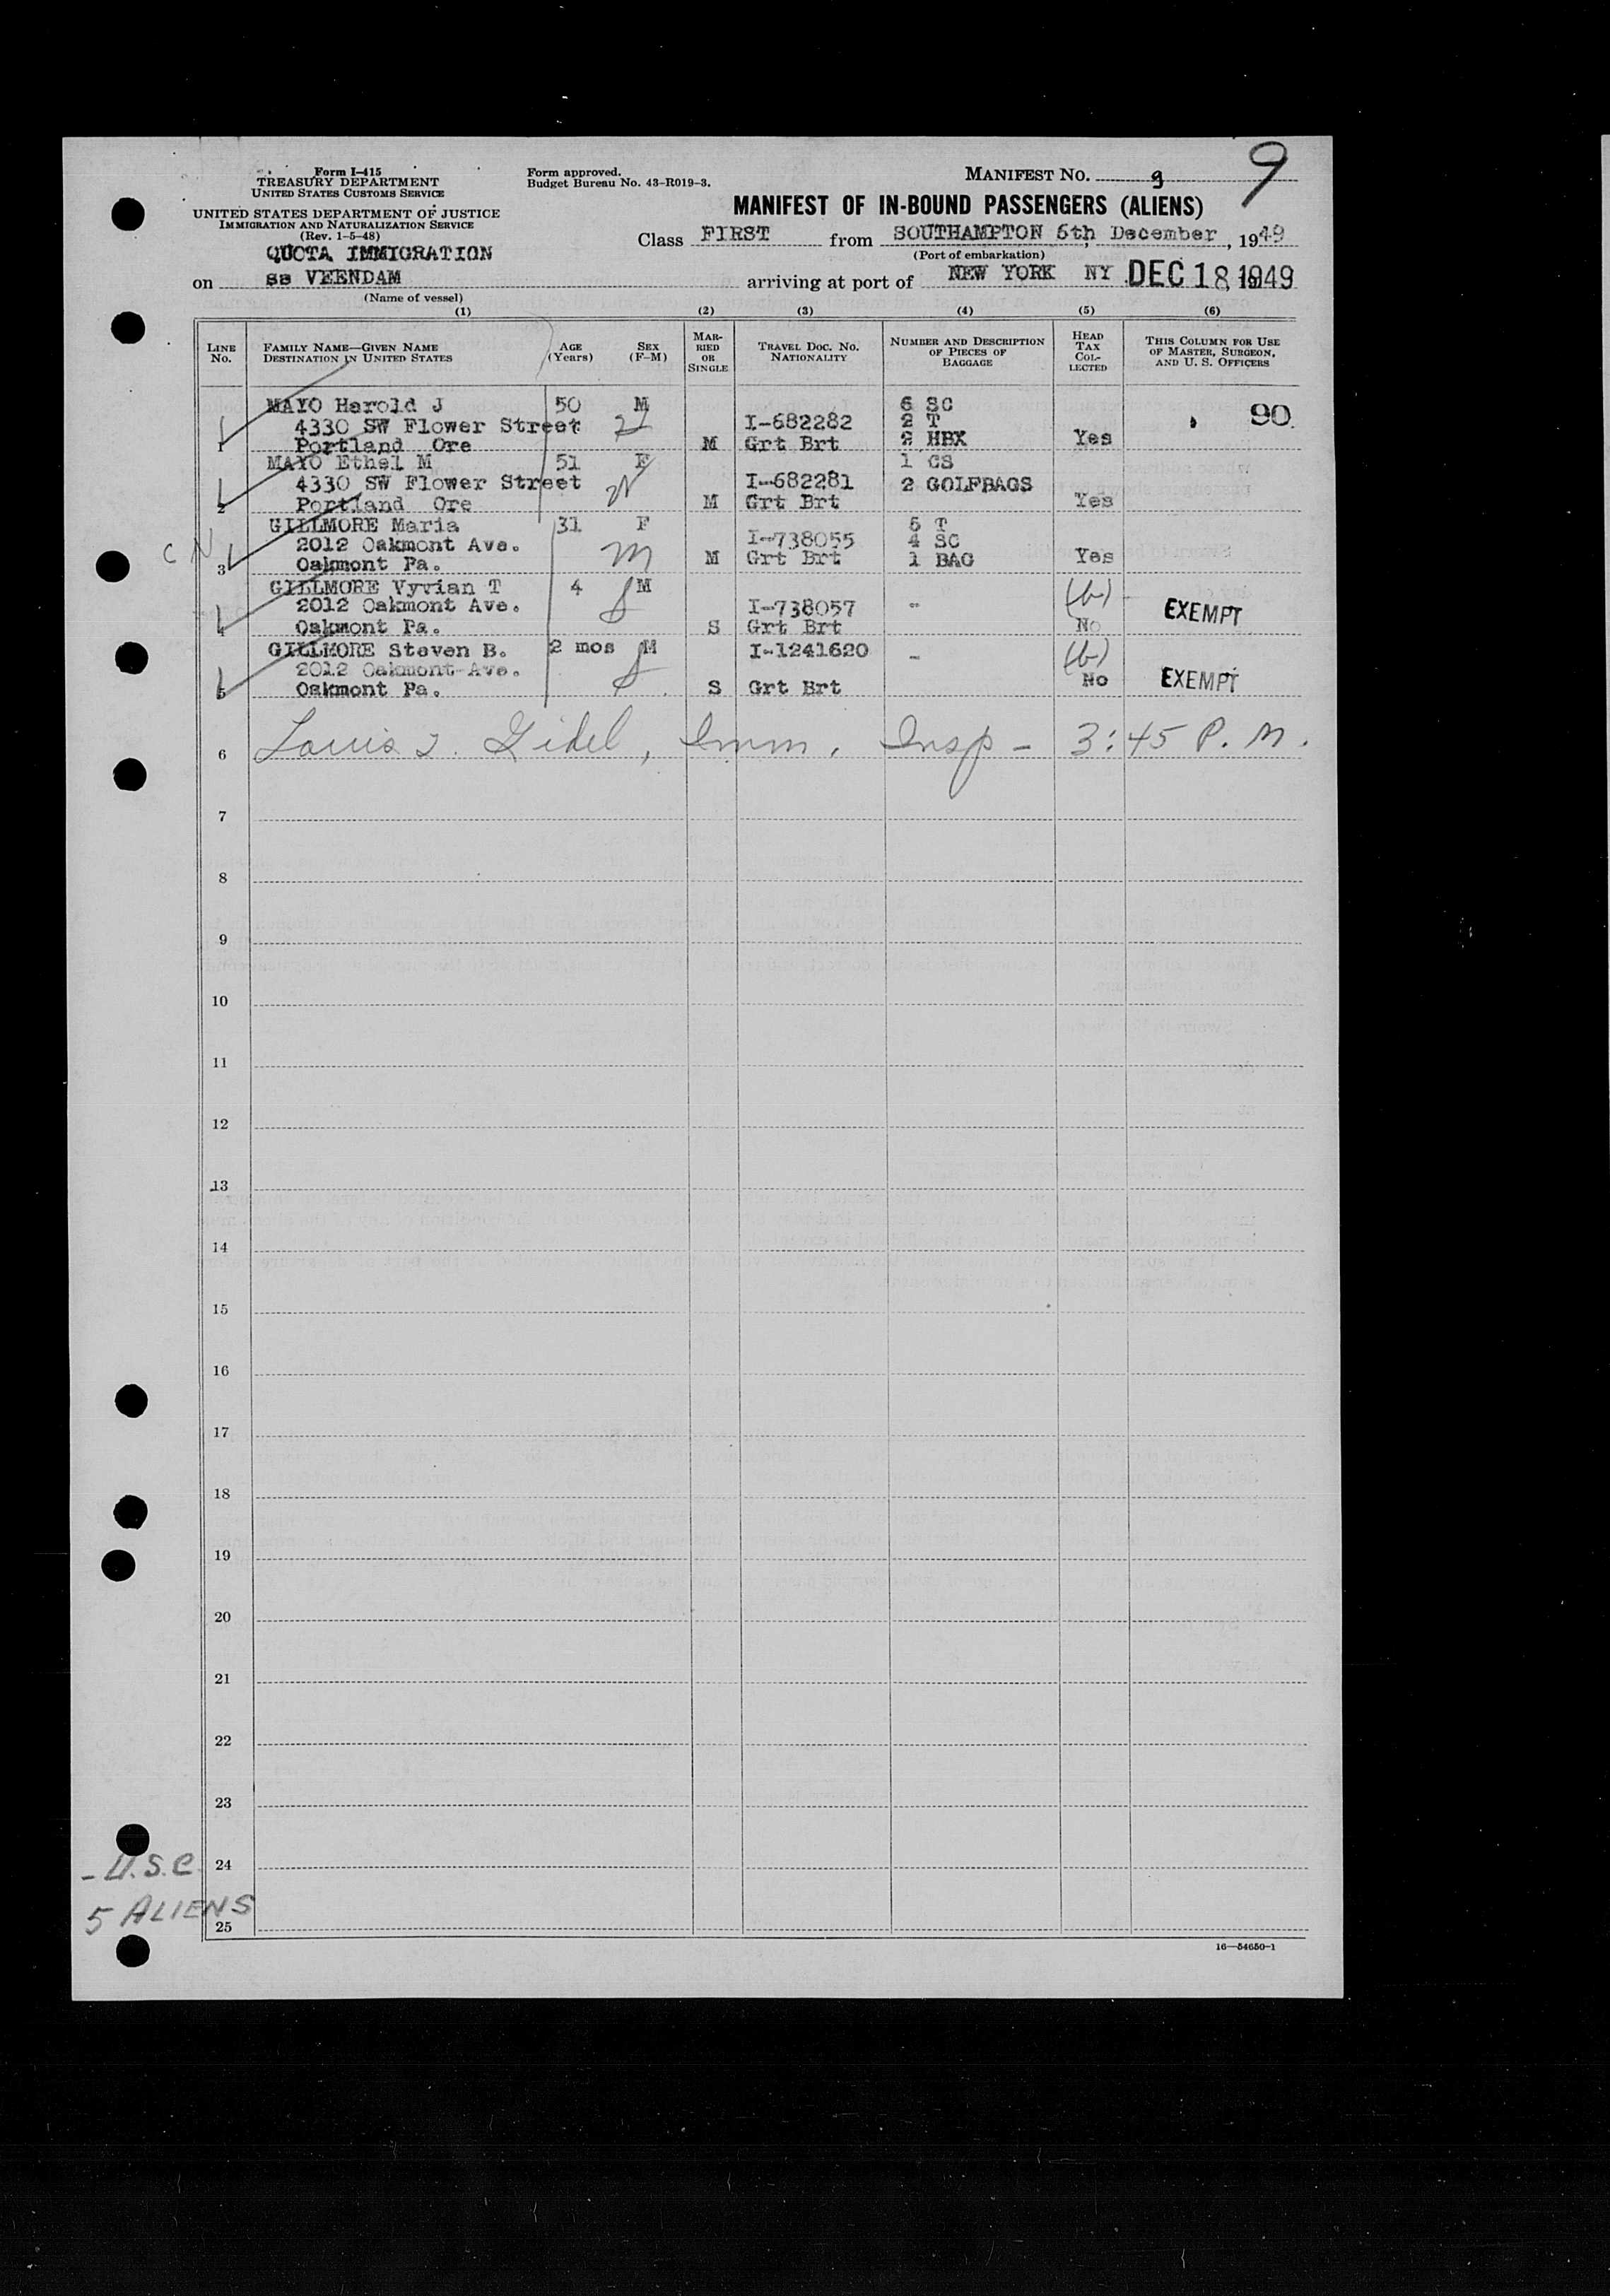 Form I-415
TREASURY DEPARTMENT
UNITED STATES CUSTOMS SERVICE
UNITED STATES DEPARTMENT OF JUSTICE
IMMIGRATION AND NATURALIZATION SERVICE
(Rev. 1-5-48)
Form approved.
Budget Bureau No. 43-R019-3.
MANIFEST NO. 9 9
MANIFEST OF IN-BOUND PASSENGERS (ALIENS)
QUOTA IMMIGRATION
Class FIRST from SOUTHAMPTON 6th, December, 1949
(Port of embarkation)
on ss VEENDAM arriving at port of NEW YORK NY DEC 18, 1949
(Name of vessel)
(1) (2) (3) (4) (5) (6)
LINE No. FAMILY NAME—GIVEN NAME DESTINATION IN UNITED STATES AGE (Years) SEX (F-M) MARRIED OR SINGLE TRAVEL DOC. NO. NATIONALITY NUMBER AND DESCRIPTION OF PIECES OF BAGGAGE HEAD TAX COLLECTED THIS COLUMN FOR USE OF MASTER, SURGEON, AND U. S. OFFICERS
MAYO Harold J 50 M 6 SC
4330 SW Flower Street I-682282 2 T 90
1 Portland Ore M Grt Brt 2 HBX Yes
MAYO Ethel M 51 F 1 CS
4330 SW Flower Street I-682281 2 GOLFBAGS
2 Portland Ore M Grt Brt Yes
GILLMORE Maria 31 F 5 T
C N 2012 Oakmont Ave. m I-738055 4 SC
3 Oakmont Pa. M Grt Brt 1 BAG Yes
GILLMORE Vyvian T 4 M (b)
2012 Oakmont Ave. S I-738057 - EXEMPT
4 Oakmont Pa. S Grt Brt No
GILLMORE Steven B. 2 mos M I-1241620 - (b)
2012 Oakmont Ave. S EXEMPT
5 Oakmont Pa. S Grt Brt No
6 Louis J. Gidel, Imm. Insp - 3:45 P. M.
7
8
9
10
11
12
13
14
15
16
17
18
19
20
21
22
23
- U.S.C. 24
5 ALIENS
25
16—54650-1